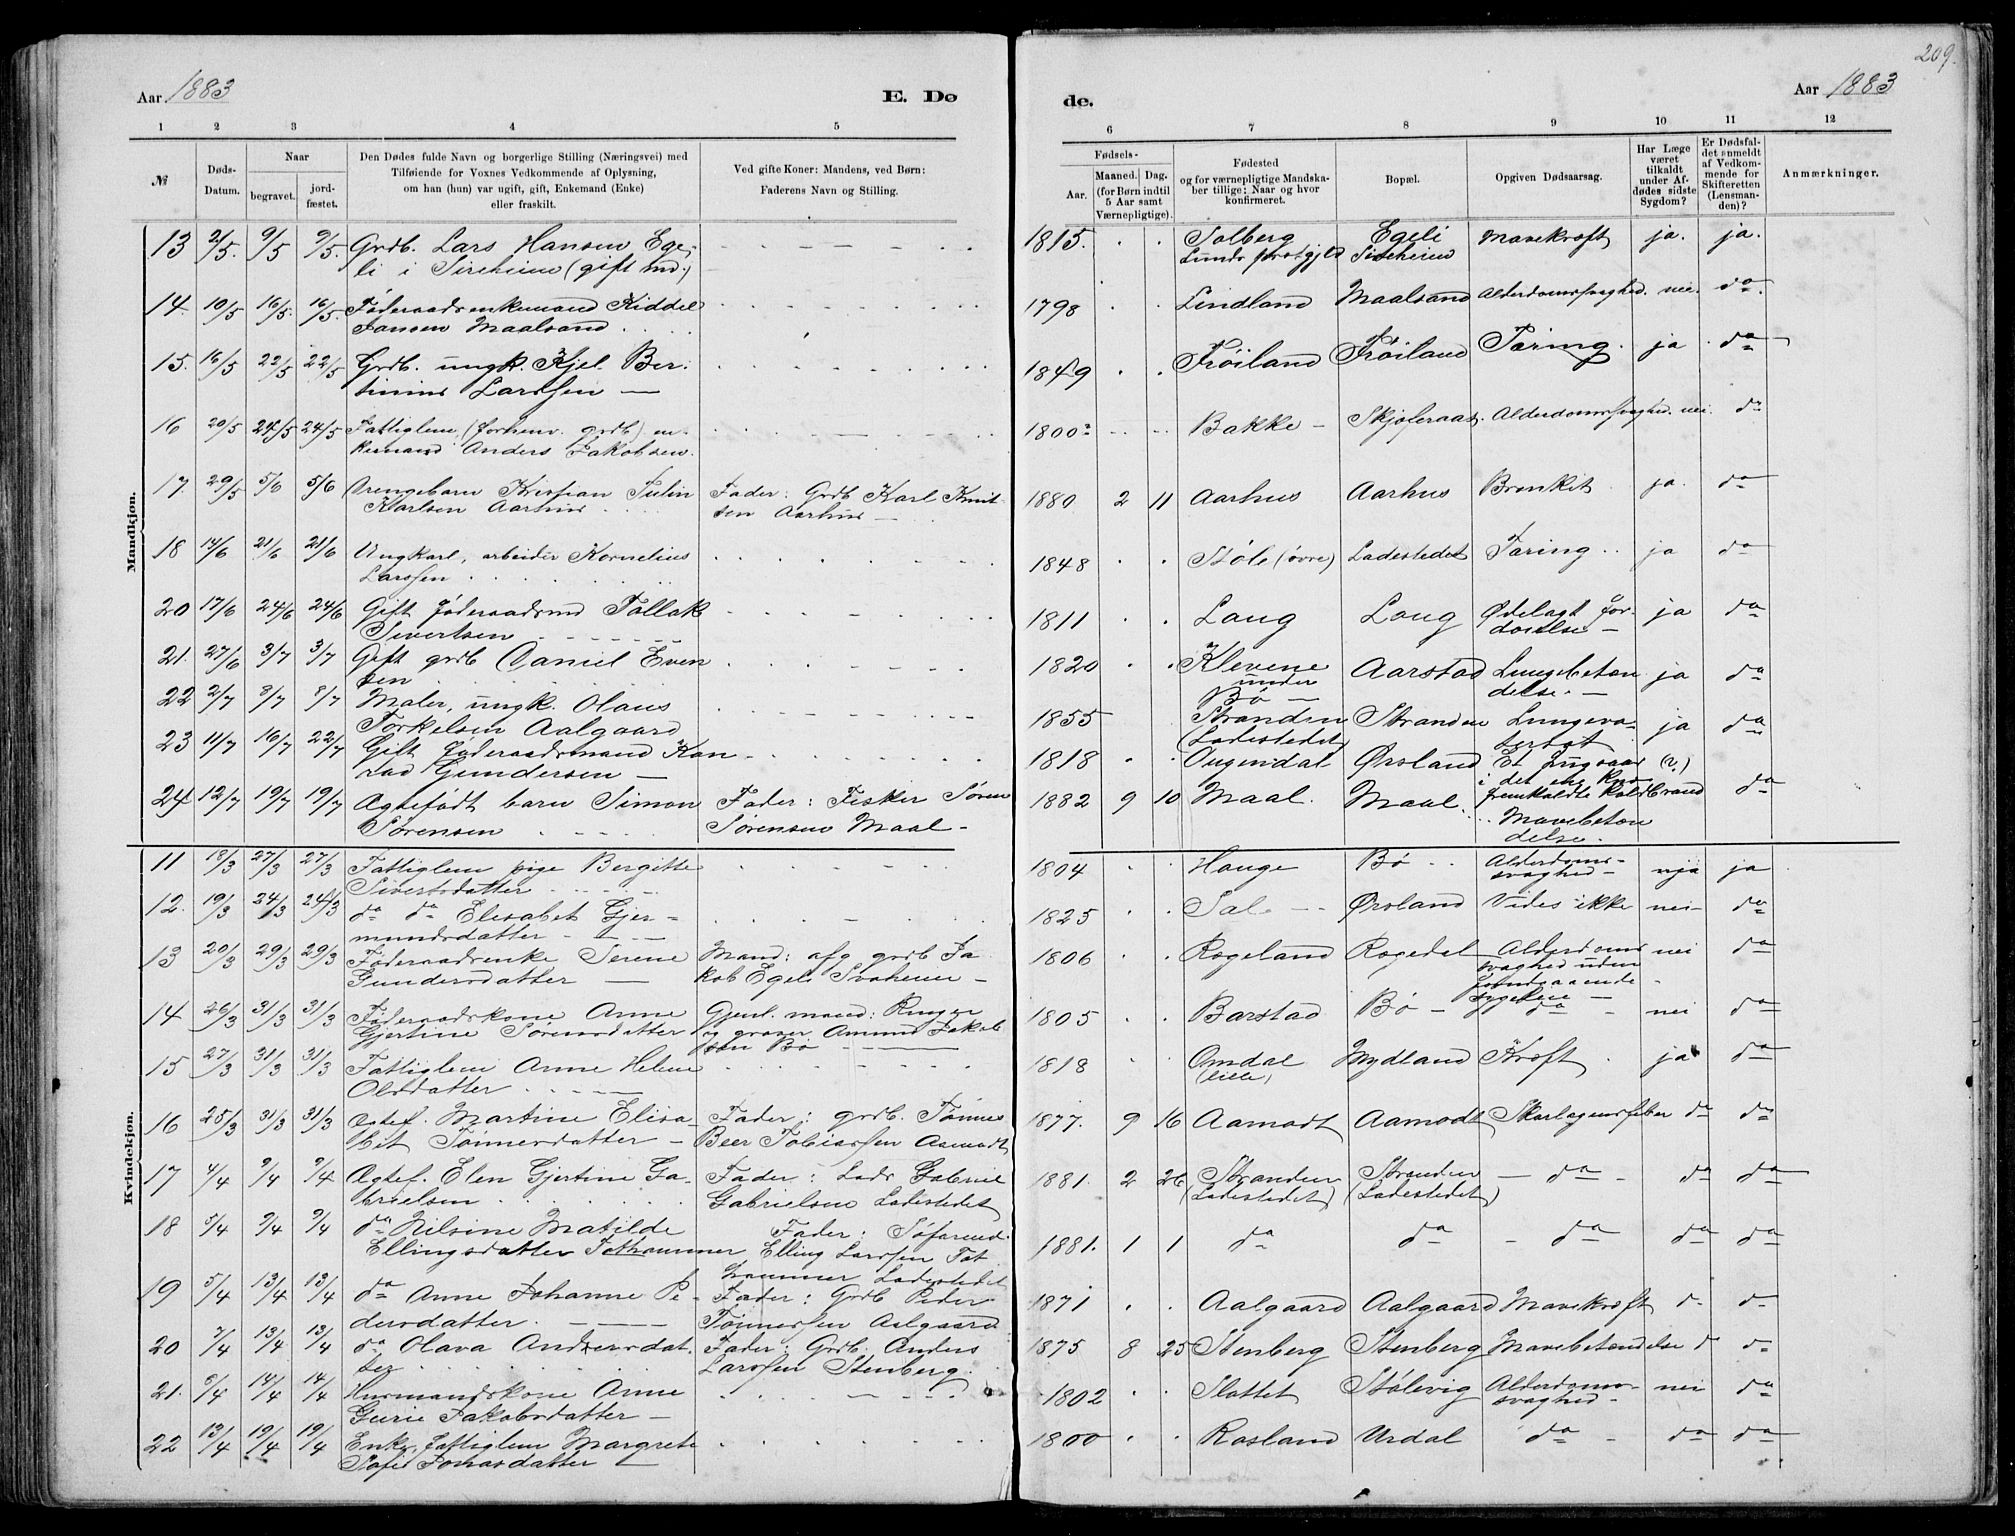 209.
Aar 1883
E. Dø
de.
Aar 1883
1 2 3 4 5 6 7 8 9 10 11 12
№
Døds-
Datum.
Naar
begravet.
jord-
fæstet.
Den Dødes fulde Navn og borgerlige Stilling (Næringsvei) med
Tilføiende for Voxnes Vedkommende af Oplysning,
om han (hun) var ugift, gift, Enkemand (Enke)
eller fraskilt.
Ved gifte Koner: Mandens, ved Børn:
Faderens Navn og Stilling.
Fødsels-
Aar.
Maaned. Dag.
(for Børn indtil
5 Aar samt
Værnepligtige).
Fødested
og for værnepligtige Mandska-
ber tillige: Naar og hvor
konfirmeret.
Bopæl.
Opgiven Dødsaarsag.
Har Læge
været
tilkaldt
under Af-
dødes sidste
Sygdom?
Er Dødsfal-
det anmeldt
af Vedkom-
mende for
Skifteretten
(Lensman-
den)?
Anmærkninger.
Mandkjøn.
13 2/5 9/5 9/5. Grdb. Lars Hansen Ege- 1815. Solberg Egeli Mavekræft ja. ja.
li i Sireheien (gift md.) Lunds prstgjld Sireheien
14. 10/5 16/5. 16/5. Føderaadsenkemand Kiddel 1798 Lindland Maalsand Alderdomssvaghed. nei. do.
Jansen Maalsand
15. 16/5 22/5 22/5 Grdb. ungk. Kjel Ber- 1849 Frøiland Frøiland Tæring. ja do
tinius Larssen —
16 20/5 24/5 24/5 Fattiglem, (forhenv. grdb) en- 1800 Bakke — Skjoleraas. Alderdomssvaghed. nei. do
kemand Anders Jakobsen.
17. 29/5 5/6 5/6 Drengebarn Kristian Julin Fader: Grdb Karl Knut- 1880 2 11 Aarhus Aarhus Bronkit ja. do
Karlsen Aarhus sen Aarhus —
18 14/6 21/6 21/6 Ungkarl, arbeider Kornelius 1848 Støle (øvre) Ladestedet Tæring ja do
Larssen
20 17/6 24/6 24/6 Gift føderaadsmd Tollak 1811 Laug Laug Ødelagt for- ja do
Sivertsen døielse —
21. 27/6 3/7 3/7 Gift grdb Daniel Even 1820 Klevene Aarstad Lungebetæn ja do
sen under delse —
Bø —
22 2/7 8/7 8/7 Maler, ungk. Olaus 1855 Stranden Stranden Lungeva- ja do
Torkelsen Aalgaard (Ladestedet)
23 11/7 16/7 22/7 Gift føderaadsmand Kon 1818 Ougendal Ørsland Et (?)
rad Gundersen — i det ene Knæ
24 12/7 19/7 19/7 Ægtefødt barn Simon Fader: Fisker Søren 1882 9 10 Maal. Maal fremkaldte Koldbrand do
Sørensen Sørensen Maal - Mavebetæn
delse.
Kvindekjøn.
11 18/3 27/3 27/3 Fattiglem pige Bergitte 1804 Hauge Bø Alderdoms- ja
Sivertsdatter svaghed —
12. 19/3 24/3 24/3 do do Elisabet Gjer- 1825 Sal — Ørsland Vides ikke nei do
mundsdatter —
13 20/3 29/3 29/3 Føderaadsenke Serene Mand: afg grdb Ja 1806 Rogeland Rogedal Alderdoms nei do
Gundersdatter — kob Egeli Svaheien - svaghed uden
foregaaende
sygeleie —
14 26/3 31/3 31/3 Føderaadskone Anne Gjenl. mand: Ringer 1805 Barstad Bø — do nei do
Gjertine Sørensdatter og graver Amund Jakob
sen Bø —
15 27/3 31/3 31/3 Fattiglem Anne Helene 1818 Omdal Mydland Kræft ja do
Olsdatter (lille)
16 25/3 31/3 31/3 Ægtef. Martine Elisa- Fader: grdb. Tønnes 1877. 9 16 Aamodt Aamodt Skarlagensfeber do do
bet Tønnesdatter — Beer Tobiassen Aamodt
17 4/4 9/4 9/4 Ægtef. Elen Gjertine Ga- Fader: Lods Gabriel 1881. 2 26 Stranden Stranden — do - do do
brielsen Gabrielsen Ladestedet (Ladestedet) (Ladestedet)
18 5/4 9/4 9/4 do Nilsine Matilde Fader: Søfarend. 1881. 1 1 do do - do do do
Ellingsdatter Fothammer Elling Larssen Fot
hammer Ladestedet
19 5/4 13/4 13/4 do Anne Johanne Pe- Fader: Grdb Peder 1871 Aalgaard Aalgaard Mavekræft d. d-
dersdatter. — Tønnessen Aalgaard
20 7/4 13/4 13/4 do Olava Andersdat- Fader: Grdb. Anders 1875 8 25 Stenberg Stenberg Mavebetændelse d d-
ter Larssen Stenberg.
21. 9/4 14/4 14/4 Husmandskone Anne 1802 Slottet Stølevig Alderdoms- nei do
Gurie Jakobsdatter — svaghed -
22 13/4 19/4 19/4 Enke, fattiglem Margrete 1800 Rosland Urdal do - do do
Sofie Jonasdatter